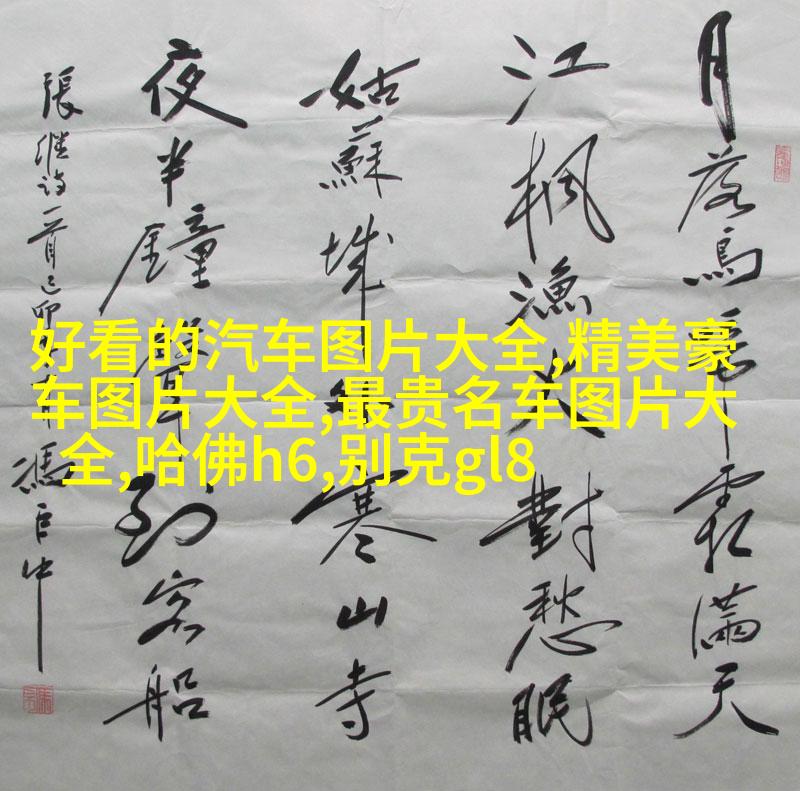 月落烏啼霜滿天
江楓漁火對愁眠
姑蘇城外寒山寺
夜半鐘聲到客船
張继诗一首己卯
好看的汽车图片大全,精美豪
车图片大全,最贵名车图片大
全,哈佛h6,别克gl8